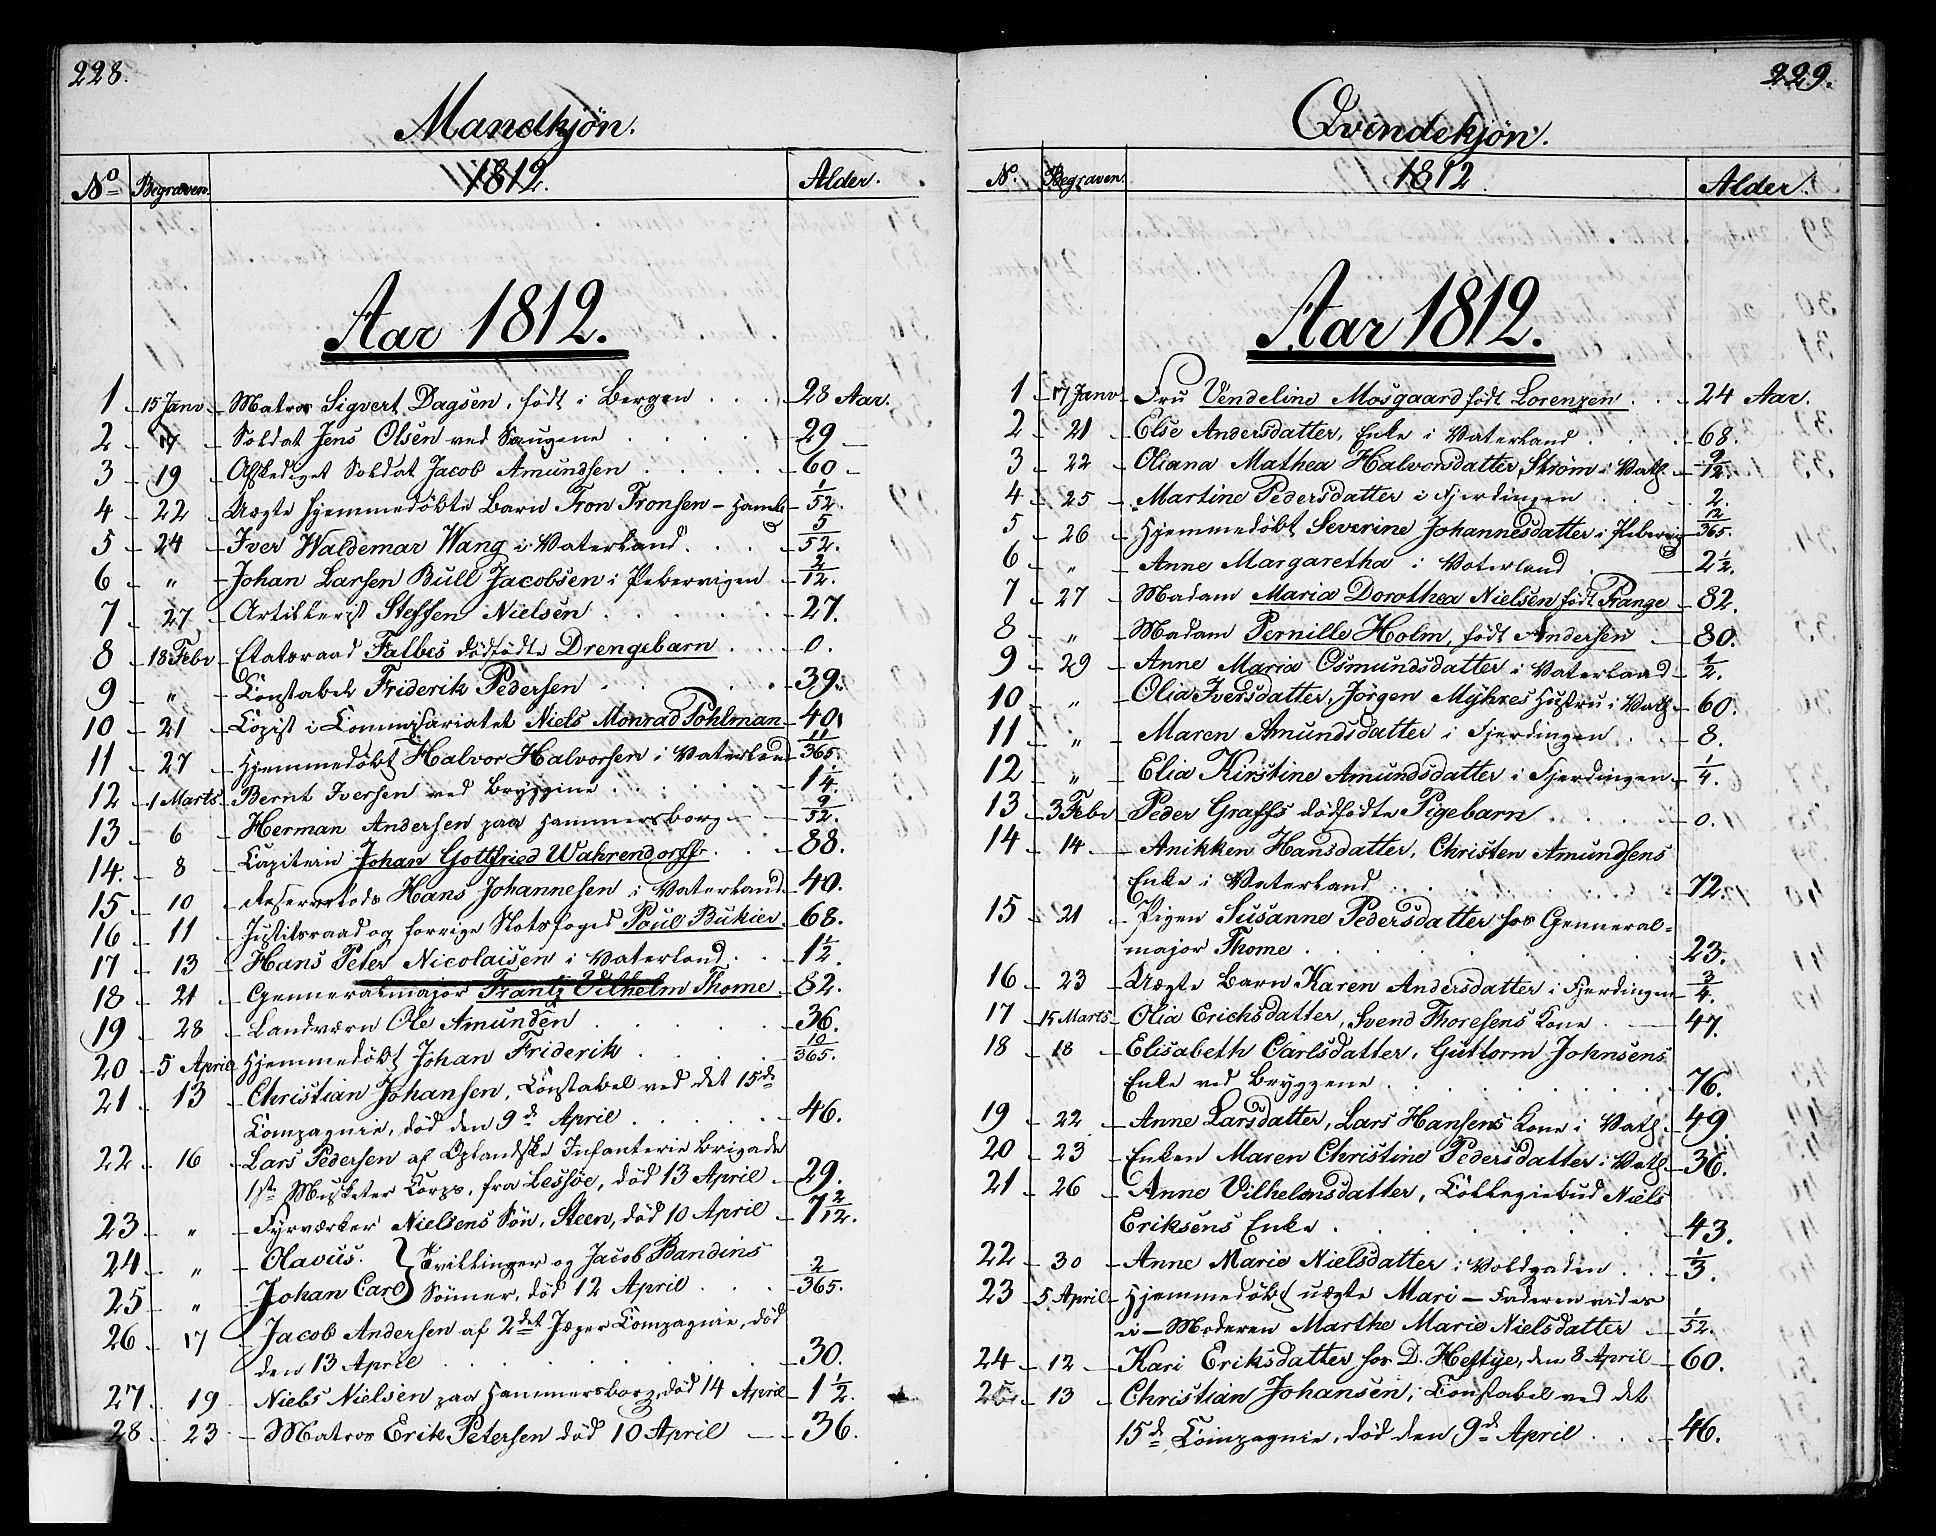 228.
Mandkjön.
No Begraven. 1812. Alder.
Aar 1812.
1 15 Janv Matros Sigvert Dagsen, født i Bergen 28 Aar.
2 17 Soldat Jens Olsen ved Saugene 29
3 19 Afskediget Soldat Jacob Amundsen 60
4 22 Uægte hjemmedöbte Barn Tron Tronsen - Hamb 1/52.
5 24 Iver Waldemar Wang i Vaterland 5/52.
6 " Johan Larsen Bull Jacobsen i Pebervigen 2/12.
7 27 Artillerist Steffen Nielsen 27.
8 18 Febr Etatsraad Falbes dödfödte Drengebarn 0.
9 " Constabel Friderik Pedersen 39.
10 21 Copist i Commisariatet Niels Monrad Pohlman 40
11 27 Hjemmedöbt Halvor Halvorsen i Vaterland 11/365.
12 1 Marts Bernt Iversen ved Bryggine 1 1/4.
13 6 Herman Andersen paa Hammersborg 9/52.
14. 8 Capitein Johan Gottfried Wahrendorff 88.
15 10 Hans Johannesen i Vaterland 40.
16 11 Justitsraad og forrige Slotsfoged Paul Bukier 68.
17 13 Hans Peter Nicolaisen i Vaterland 1 1/2.
18 21 Genneralmajor Frantz Vilhelm Thome 82.
19 28 Landværn Ole Amunden 36.
20 5 April Hjemmedöbt Johan Friderik 10/365.
21 13 Christian Johansen, Constabel ved det 15de
Compagnie, död den 9d April 46.
22 16 Lars Pedersen af Oplandske Infanterie Brigade
1ste Musketer Corps, fra Lessöe, död 13 April 29.
23 " Fyrværker Nielsens Sön, Steen, död 10 April 7 2/12.
24 " Olavus. } Tvillinger og Jacob Bandins
25 " Johan Carl } Sönner, död 12 April 2/365.
26 17 Jacob Andersen af 2det Jæger Compagnie, död
den 13 April 30.
27 19 Niels Nielsen paa Hammersborg, död 14 April 1 1/2.
28 23 Matros Erik Petersen död 10 April 36.
229.
Qvindekjön.
N. Begraven. 1812 Alder.
Aar 1812.
1 17 Janv Fru Vendeline Mosgaard födt Lorenzen 24 Aar.
2 21 Else Andersdatter, Enke i Vaterland 68.
3 22 Oliana Mathea Halvorsdatter Ström i Vatl 9/12.
4 25 Martine Pedersdatter i Fjerdingen 2/12
5 26 Hjemmedöbt Severine Johannesdatter i Pebervig 365.
6 " Anne Margaretha i Vaterland 2 1/2.
7 27 Madam Maria Dorothea Nielsen födt Prange 82.
8 " Madam Pernille Holm, födt Andersen 80.
9 29 Anne Maria Osmundsdatter i Vaterlaad 1/2.
10 " Olia Iversdatter, Jörgen Myhres Hustru i Vatl 60.
11 " Maren Amundsdatter i Fjerdingen 8.
12 " Elia Kirstine Amundsdatter i Fjerdingen 1/4.
13 3 Febr Peder Graffs dödfödte Pigebarn 0.
14 14 Anikken Hansdatter, Christen Amundsens
Enke i Vaterland 72.
15 21 Pigen Susanne Pedersdatter hos Genneral-
major Thome 23.
16 23 Uægte Barn Karen Andersdatter i Fjerdingen 3/4.
17 15 Marts Olia Erichsdatter, Svend Thoresens Kone 47.
18 18 Elisabeth Carlsdatter, Guttorm Johnsens
Enke ved Bryggene 76.
19 22 Anne Larsdatter, Lars Hansens Kone i Vatl. 49.
20 23 Enken Maren Christine Pedersdatter i Vatl 36.
21 26 Anne Vilhelmsdatter, Collegiebud Niels
Eriksens Enke 43.
22 30 Anne Marie Nielsdatter i Voldgaden 1/3.
23 5 April Hjemmedöbt uægte Mari - Faderen vides
ei - Moderen Marthe Marie Nielsdatter 1/52.
24 12 Kari Eriksdatter hos D. Heftye, den 8 April 60.
25 13 Christian Johansen, Constabel ved det
15d Compagnie, död den 9d April 46.